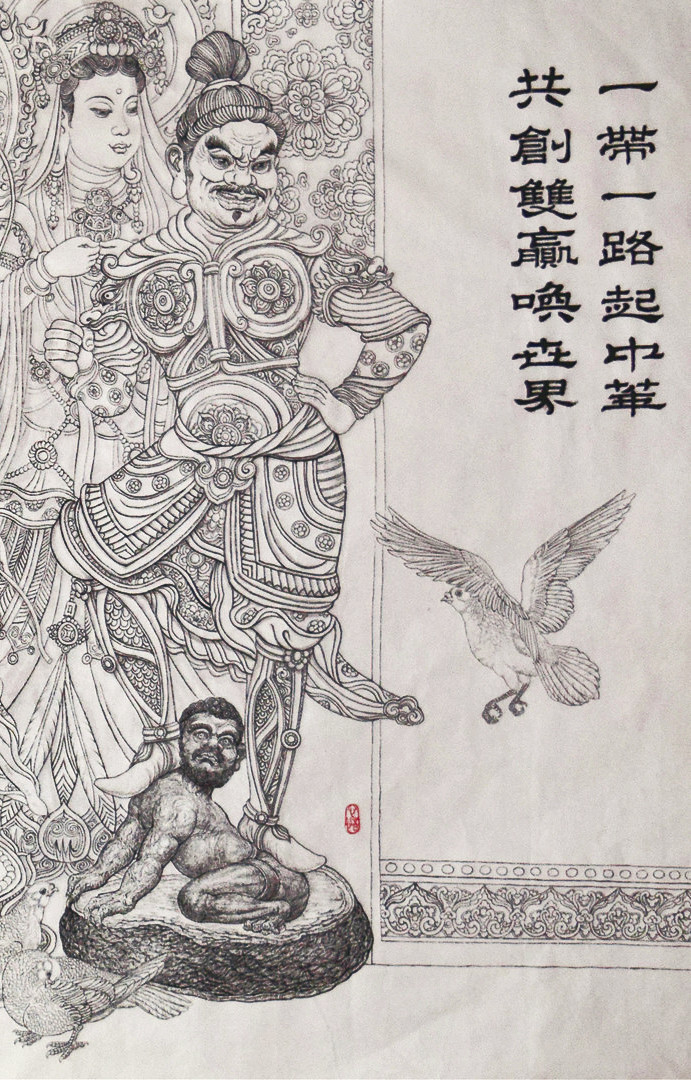 一帶一路起中華
共創雙贏喚世界